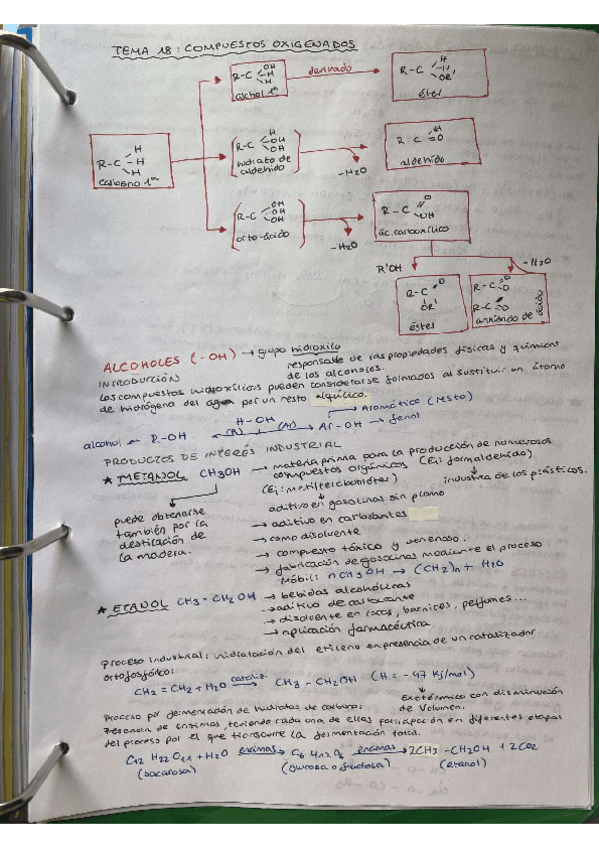 TEMA 18: COMPUESTOS OXIGENADOS
R-C OH H H
alcohol 1º
derivado
R-C H H OR'
éter
R-C H H H
carbono 1º
R-C H OH OH
hidrato de
aldehído
-H2O
R-C H =O
aldehído
R-C OH OH OH
orto-ácido
-H2O
R-C O OH
ác. carboxílico
R'OH
-H2O
R-C O OR'
éster
R-C O
R-C O
anhídrido de
ácido
ALCOHOLES (-OH) → grupo hidroxilo
responsable de las propiedades físicas y químicas
de los alcoholes.
INTRODUCCIÓN
Los compuestos hidroxílicos pueden considerarse formados al sustituir un átomo
de hidrógeno del agua por un resto alquílico.
H-OH → Aromático (resto)
alcohol ← R-OH ← (R) (Ar) → Ar-OH → fenol
PRODUCTOS DE INTERÉS INDUSTRIAL
★ METANOL CH3OH → materia prima para la producción de numerosos
compuestos orgánicos (Ej: formaldehido)
(Ej: metilterc-butiléter) industria de los plásticos.
aditivo en gasolinas sin plomo
puede obtenerse
también por la
destilación de
la madera.
→ aditivo en carburantes
→ como disolvente
→ compuesto tóxico y venenoso.
→ fabricación de gasolinas mediante el proceso
Móbil: nCH3OH → (CH2)n + H2O
★ ETANOL CH3-CH2OH → bebidas alcohólicas
→ aditivo de carburante
→ disolvente en lacas, barnices, perfumes...
→ aplicación farmacéutica
Proceso industrial: hidratación del etileno en presencia de un catalizador
ortofosfórico:
CH2=CH2 + H2O cataliz. → CH3-CH2OH (H = -47 Kj/mol)
Exotérmica con disminución
de volumen.
Proceso por fermentación de hidratos de carbono:
Presencia de enzimas, teniendo cada una de ellas participación en diferentes etapas
del proceso por el que transcurre la fermentación total.
C12H22O11 + H2O enzimas → C6H12O6 enzimas → 2CH3-CH2OH + 2CO2
(sacarosa) (glucosa o fructosa) (etanol)